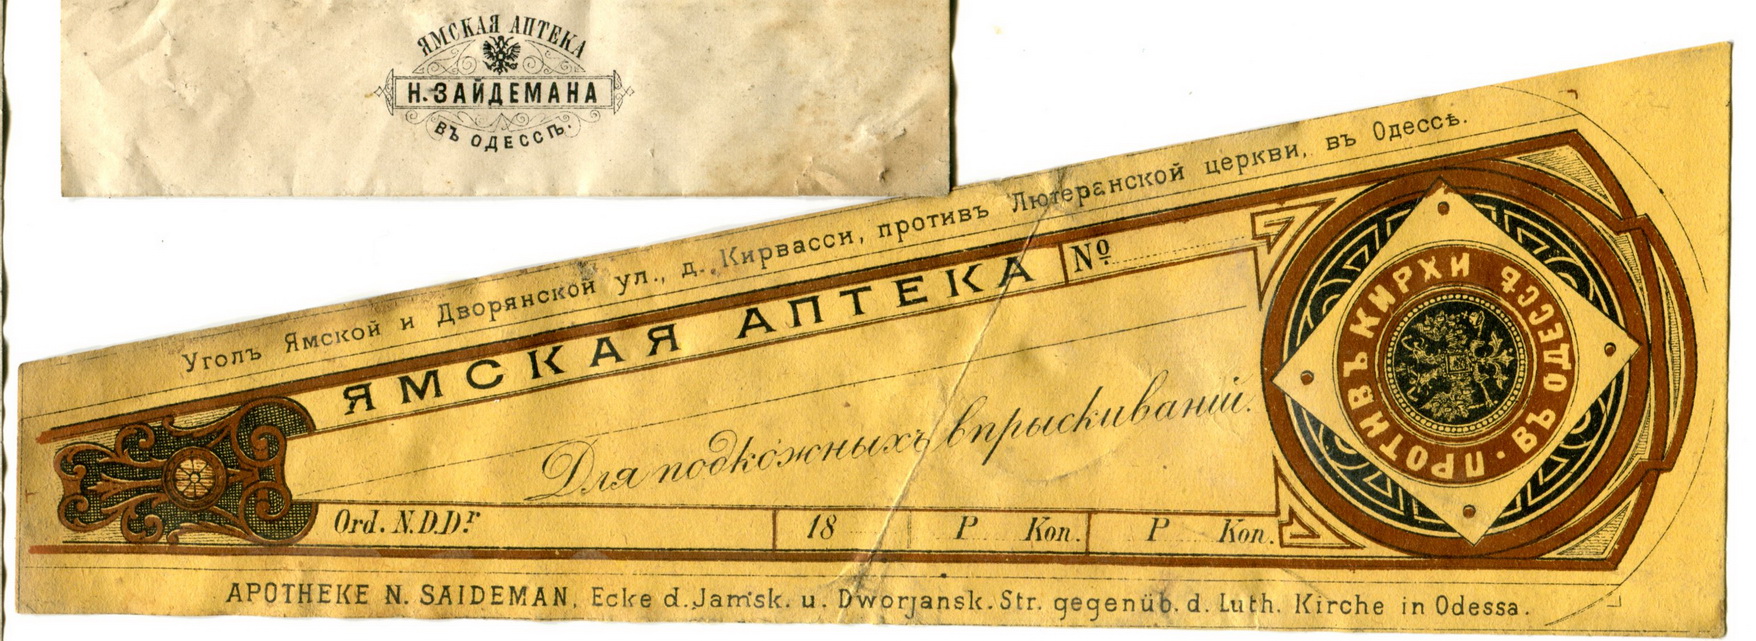 ЯМСКАЯ АПТЕКА
Н. ЗАЙДЕМАНА
ВЪ ОДЕССѢ.
Уголъ Ямской и Дворянской ул., д. Кирвасси, противъ Лютеранской церкви, въ Одессѣ.
ЯМСКАЯ АПТЕКА
№
Для подкожныхъ впрыскиваній.
Ord. N.D.Dr
18 Р Коп. Р Коп.
ПРОТИВЪ КИРХИ
ВЪ ОДЕССѢ
APOTHEKE N. SAIDEMAN, Ecke d. Jamsk. u. Dworjansk. Str. gegenüb. d. Luth. Kirche in Odessa.